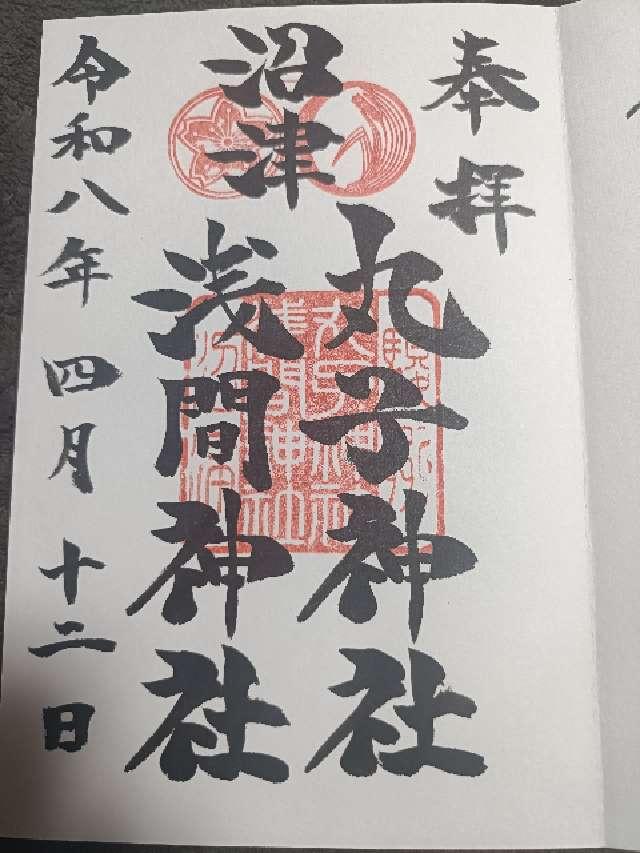 奉拝
沼津
丸子神社
浅間神社
令和八年四月十二日